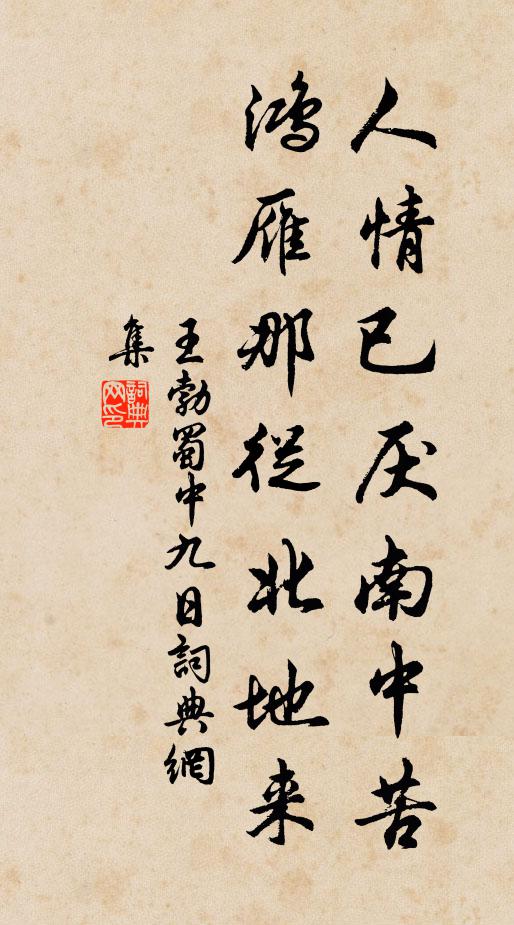 人情已厌南中苦
鸿雁那從北地来
王勃蜀中九日詞典網
集
詞典網印